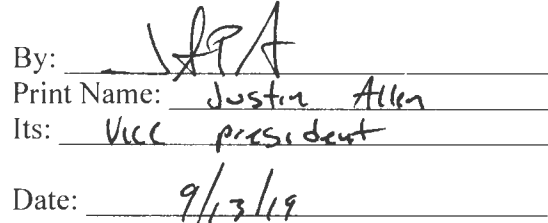 By:
Print Name: Justin Allen
Its: Vice president
Date: 9/13/19